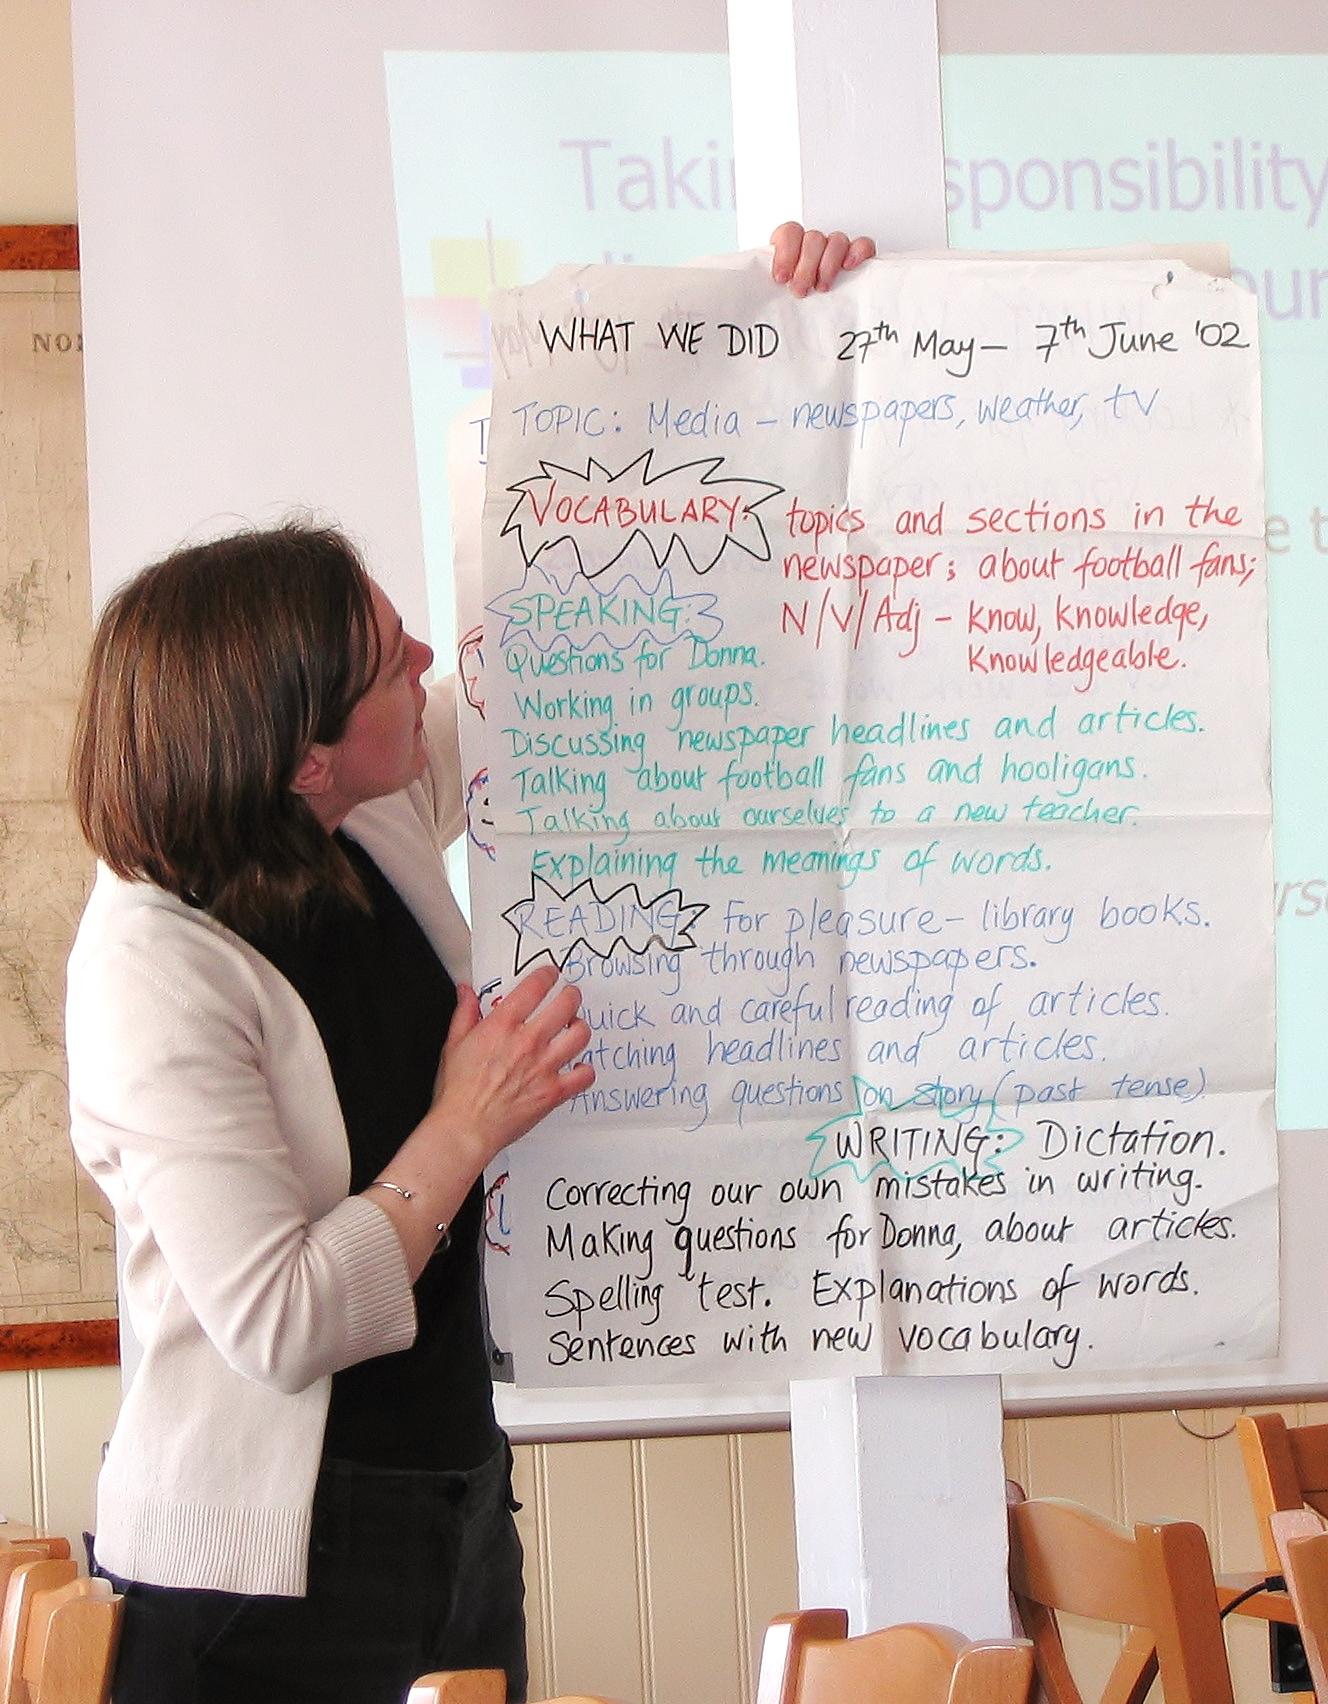 WHAT WE DID 27th May – 7th June '02
TOPIC: Media – newspapers, weather, tV
VOCABULARY: topics and sections in the
newspaper; about football fans;
N/V/Adj – know, knowledge,
knowledgeable.
SPEAKING:
Questions for Donna.
Working in groups.
Discussing newspaper headlines and articles.
Talking about football fans and hooligans.
Talking about ourselves to a new teacher.
Explaining the meanings of words.
READING: for pleasure – library books.
Browsing through newspapers.
and careful reading of articles.
headlines and articles.
Answering questions on story (past tense)
WRITING: Dictation.
Correcting our own mistakes in writing.
Making questions for Donna, about articles.
Spelling test. Explanations of words.
Sentences with new vocabulary.